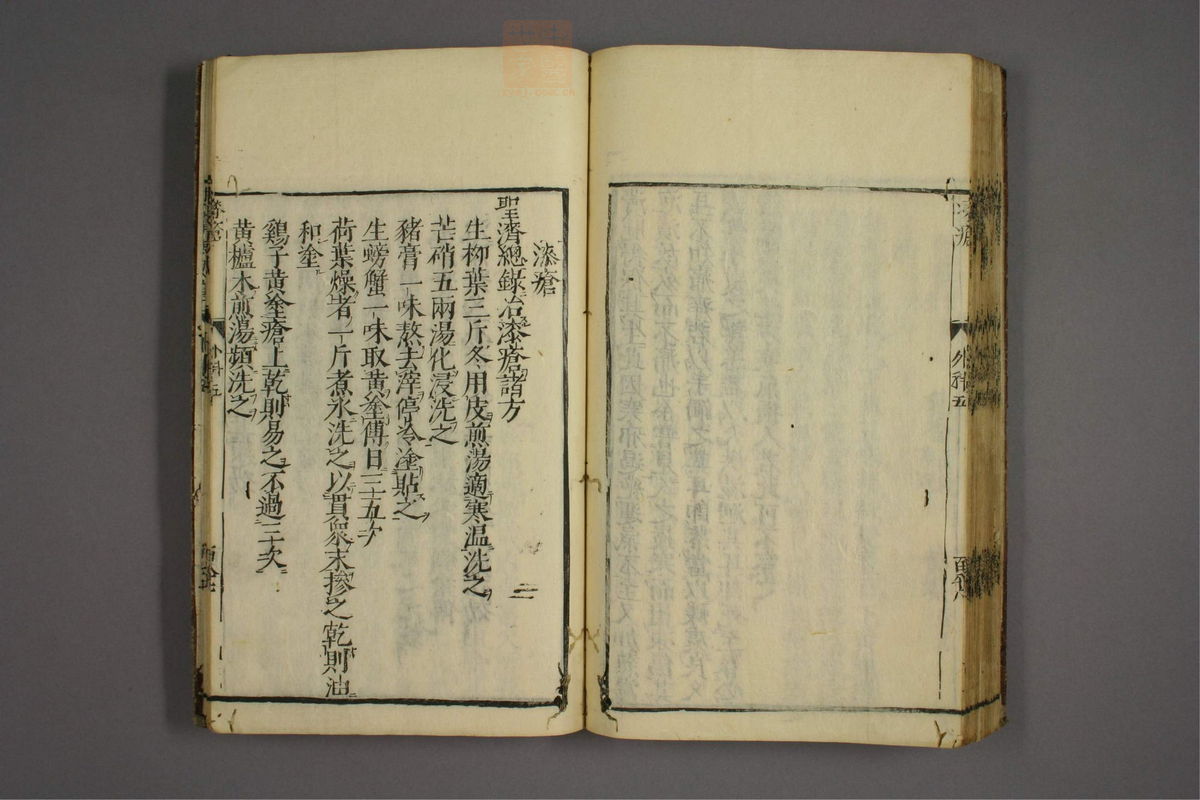 漆瘡
外科五
漆瘡
聖濟總錄治漆瘡諸方
生柳葉三斤冬用皮煎湯適寒温洗之
芒硝五兩湯化浸洗之
豬膏一味熬去滓停冷塗貼之
生螃蟹一味取黄塗傅日三五次
荷葉燥者一斤煮水洗之以貫衆末摻之乾則油
和塗
鷄子黄塗瘡上乾則易之不過三十次
黄櫨木煎湯頻洗之
外科五